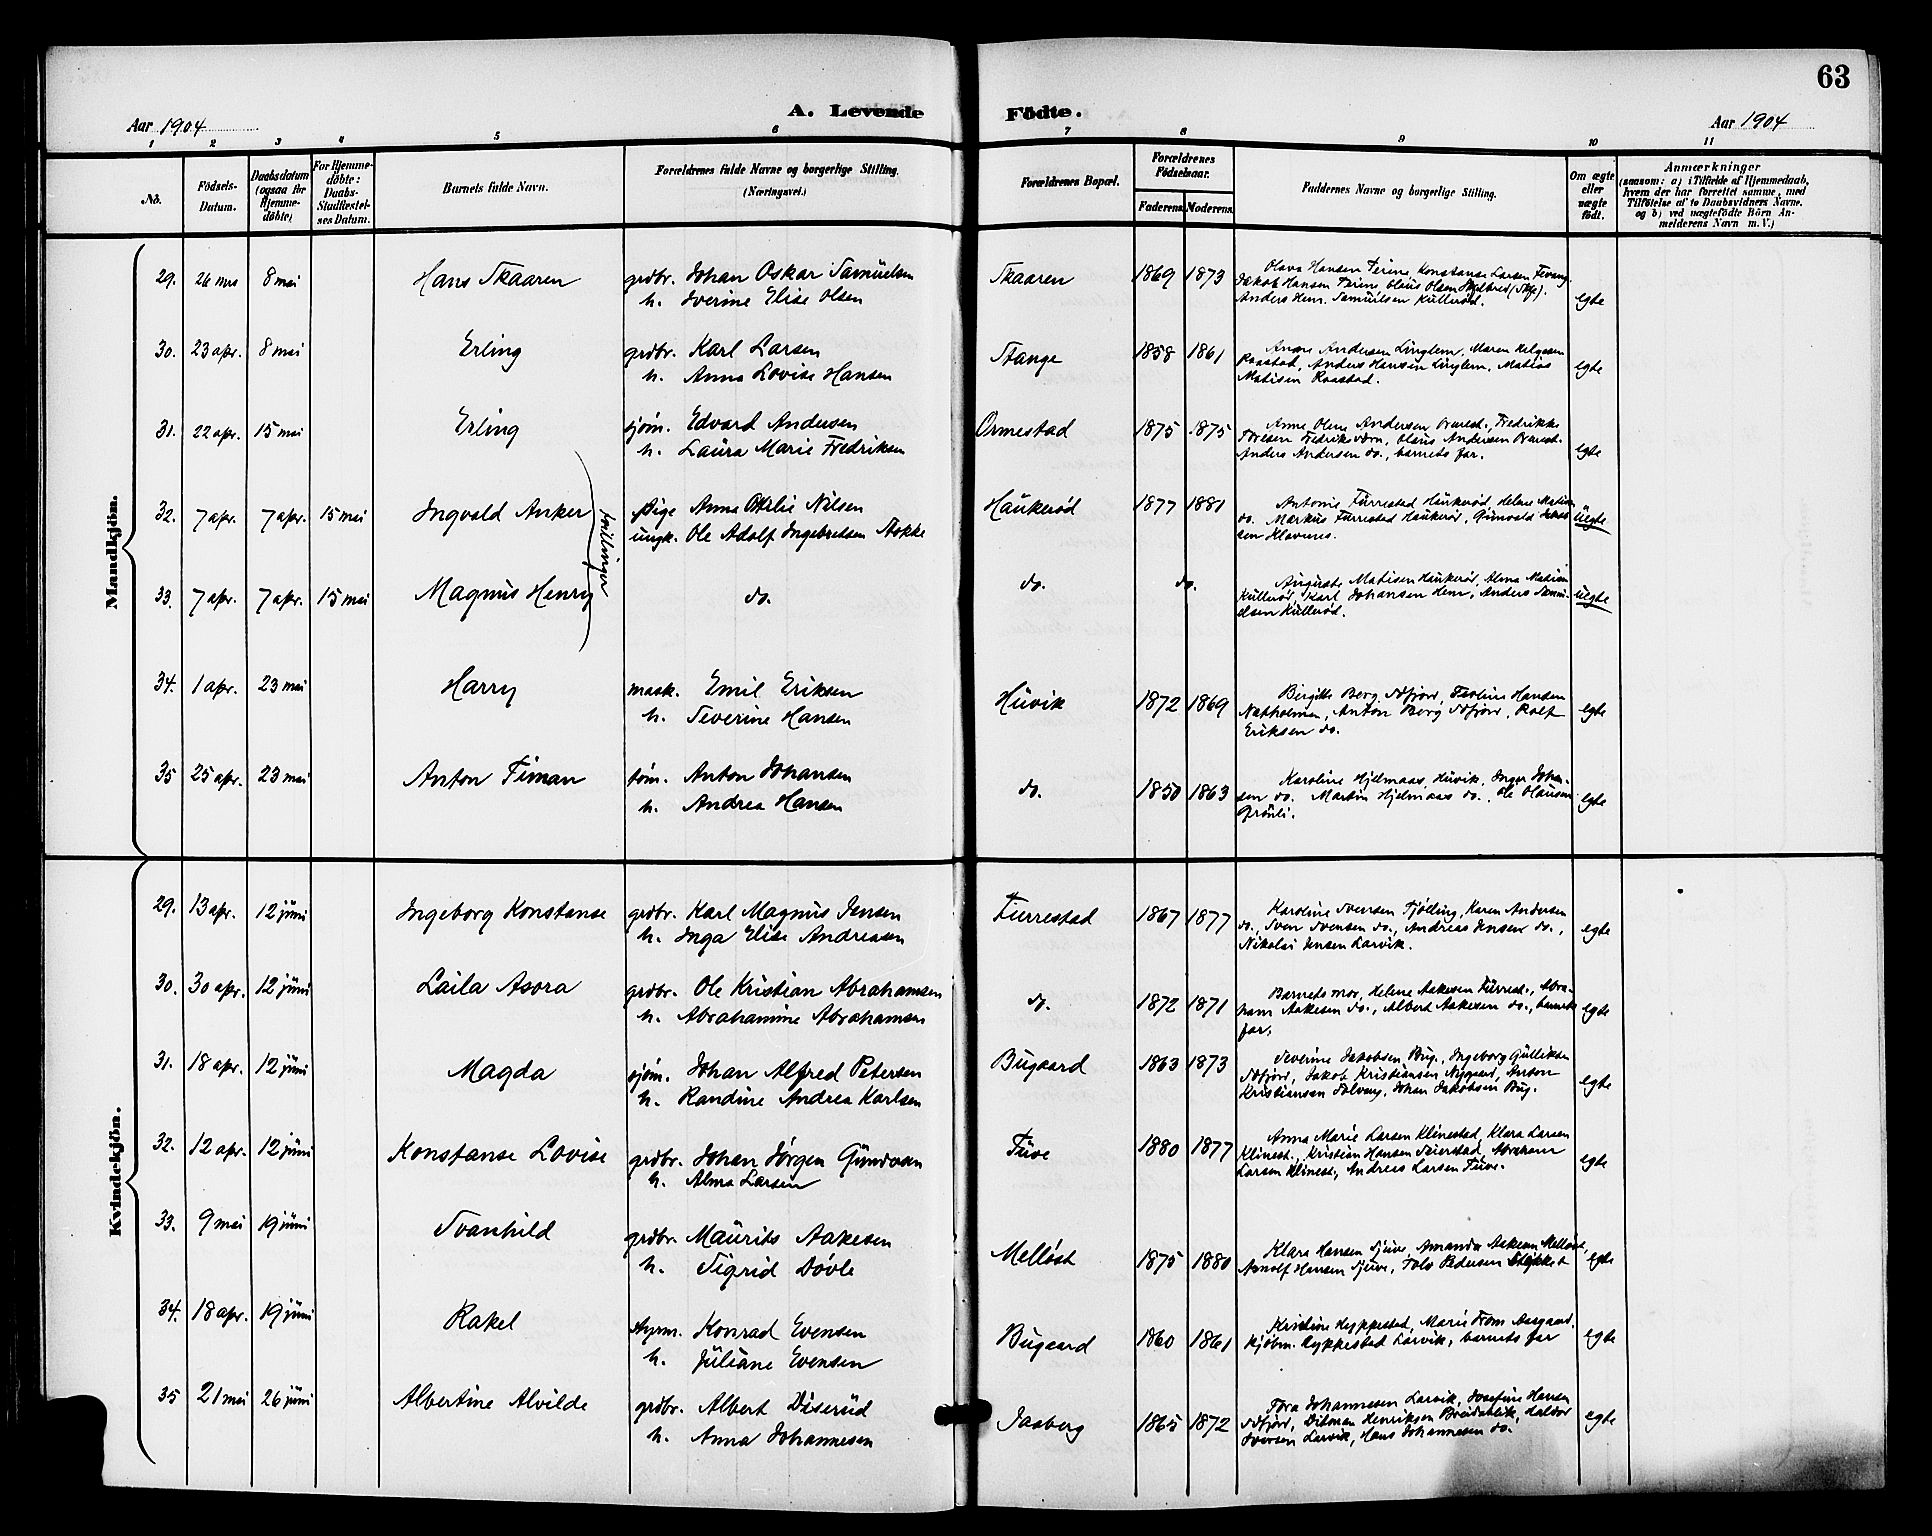 63
A. Levende Födte.
Aar 1904
Aar 1904
1 2 3 4 5 6 7 8 9 10 11
No.
Födsels-Datum.
Daabsdatum (ogsaa for Hjemme-döbte)
For Hjemme-döbte: Daabs-Stadfæstel-ses Datum.
Barnets fulde Navn.
Forældrenes fulde Navne og borgerlige Stilling. (Næringsvei.)
Forældrenes Bopæl.
Forældrenes Födselsaar.
Faderens. Moderens.
Faddernes Navne og borgerlige Stilling.
Om ægte eller uægte födt.
Anmærkninger
(saasom: a) i Tilfælde af Hjemmedaab,
hvem der har forrettet samme, med
Tilföielse af to Daabsvidners Navne,
og b) ved uægtefödte Börn An-
melderens Navn m. V.)
Mandkjön.
29. 26 mrs 8 mai Hans Skaaren grdbr. Johan Oskar Samuelsen Skaaren 1869 1873 Olava Hansen Ferine, Konstanse Larsen Tevang
h. Iverine Elise Olsen Jakob Hansen Ferine, Olaus Olsen
Anders Henr. Samuelsen Kullerød. egte
30. 23 apr. 8 mai Erling grdbr. Karl Larsen Stange 1858 1861 Anne Andersen Linglem, Maren Helgesen
h. Anna Lovise Hansen Raastad, Anders Hansen Linglem, Matias
Matisen Raastad. egte
31. 22 apr. 15 mai Erling sjøm. Edvard Andersen Ormestad 1875 1875 Anne Oline Andersen Ormest., Fredrikke
h. Laura Marie Fredriksen Toresen Fredriksværn, Olaus Andersen Ormest.
Anders Andersen do., barnets far. egte
32. 7 apr. 7 apr. 15 mai Ingvald Anker pige Anna Otilie Nilsen Haukerød 1877 1881 Antonie Furrestad Haukerød, Helene Matisen
ungk. Ole Adolf Ingebretsen Stokke do. Markus Furrestad Haukerød, Gunvald
sen Klavenes. uegte
tvillinger
33. 7 apr. 7 apr. 15 mai Magnus Henry do. do. do. Auguste Matisen Haukerød, Alma Matisen
Kullerød, Karl Johansen Hem, Anders Samu-
elsen Kullerød. uegte
34. 1 apr. 23 mai Harry mask. Emil Eriksen Huvik 1872 1869 Birgitte Berg Sdfjord, Teoline Hansen
h. Severine Hansen Natholmen, Anton Berg Sdfjord, Rolf
Eriksen do. egte
35 25 apr. 23 mai Anton Timan tøm. Anton Johansen do. 1850 1863 Karoline Hjelmaas Huvik, Inger Johan-
h. Andrea Hansen sen do. Martin Hjelmaas do., Ole Olausen
Grønli. egte
Kvindekjön.
29. 13 apr. 12 juni Ingeborg Konstanse grdbr. Karl Magnus Jensen Furrestad 1867 1877 Karoline Svensen Tjølling, Karen Andersen
h. Inga Elise Andreasen do., Sven Svensen do., Andreas Jensen do.,
Nikolai Jensen Larvik. egte
30. 30 apr. 12 juni Laila Asora grdbr. Ole Kristian Abrahamsen do. 1872 1871 Barnets mor, Helene Aakesen Furrest., Abra-
h. Abrahamine Abrahamsen ham Aakesen do., Albert Aakesen do., barnets
far. egte
31. 18 apr. 12 juni Magda sjøm. Johan Alfred Petersen Bugaard 1863 1873 Severine Jakobsen Bug., Ingeborg Gulliksen
h. Randine Andrea Karlsen Sdfjord, Jakob Kristiansen Nygaard, Anton
Kristiansen Solvang, Johan Jakobsen Bug. egte
32. 12 apr. 12 juni Konstanse Lovise grdbr. Johan Jørgen Gundersen Tuve 1880 1877 Anna Marie Larsen Klinestad, Klara Larsen
h. Alma Larsen Klinest., Kristian Hansen Feierstad, Abraham
Larsen Klinest., Andreas Larsen Tuve. egte
33. 9 mai 19 juni Svanhild grdbr. Maurits Aakesen Melløst 1875 1880 Klara Hansen Tjuve, Amanda Aakesen Melløst,
h. Sigrid Døvle Arnolf Hansen Tjuve, Tolv Pedersen Stykket egte
34. 18 apr. 19 juni Rakel styrm. Konrad Evensen Bugaard 1860 1861 Kristine Rykkestad, Marie From Aasgaard,
h. Juliane Evensen kjøbm. Rykkestad Larvik, barnets far egte
35 21 mai 26 juni Albertine Alvilde grdbr. Albert Diserud Jaaberg 1865 1872 Tora Johannesen Larvik, Josefine Hansen
h. Anna Johannesen Sdfjord, Ditman Henriksen Breidablik, Haldor
Iversen Larvik, Hans Johannesen do. egte